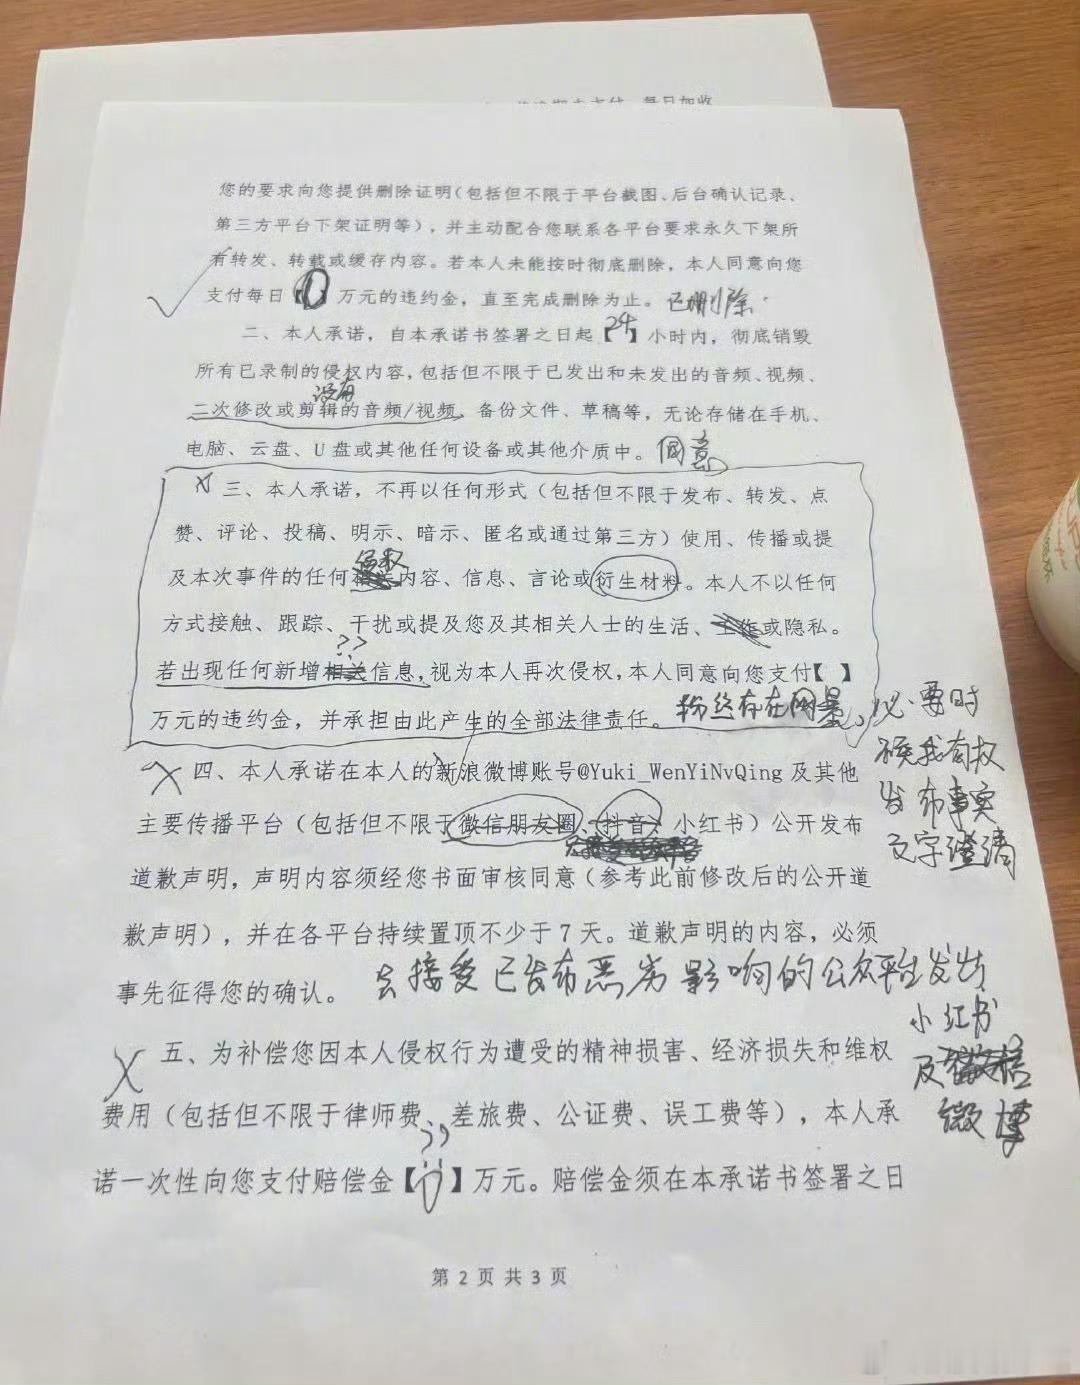 您的要求向您提供删除证明（包括但不限于平台截图、后台确认记录、
第三方平台下架证明等），并主动配合您联系各平台要求永久下架所
有转发、转载或缓存内容。若本人未能按时彻底删除，本人同意向您
支付每日【0】万元的违约金，直至完成删除为止。已删除.
二、本人承诺，自本承诺书签署之日起【24】小时内，彻底销毁
所有已录制的侵权内容，包括但不限于已发出和未发出的音频、视频、
没有
二次修改或剪辑的音频/视频，备份文件、草稿等，无论存储在手机、
电脑、云盘、U盘或其他任何设备或其他介质中。同意
X 三、本人承诺，不再以任何形式（包括但不限于发布、转发、点
赞、评论、投稿、明示、暗示、匿名或通过第三方）使用、传播或提
侵权
及本次事件的任何相关内容、信息、言论或衍生材料。本人不以任何
方式接触、跟踪、干扰或提及您及其相关人士的生活、工作或隐私。
??
若出现任何新增相关信息，视为本人再次侵权，本人同意向您支付【 】
万元的违约金，并承担由此产生的全部法律责任。粉丝存在网暴。必要时
候我有权
发布事实
文字澄清
X 四、本人承诺在本人的新浪微博账号@Yuki_WenYiNvQing及其他
主要传播平台（包括但不限于微信朋友圈、抖音、小红书）公开发布
道歉声明，声明内容须经您书面审核同意（参考此前修改后的公开道
歉声明），并在各平台持续置顶不少于7天。道歉声明的内容，必须
事先征得您的确认。接受已发布恶劣影响的公众平台发布
小红书
及
微博
X 五、为补偿您因本人侵权行为遭受的精神损害、经济损失和维权
费用（包括但不限于律师费、差旅费、公证费、误工费等），本人承
??
诺一次性向您支付赔偿金【】万元。赔偿金须在本承诺书签署之日
第 2 页 共 3 页